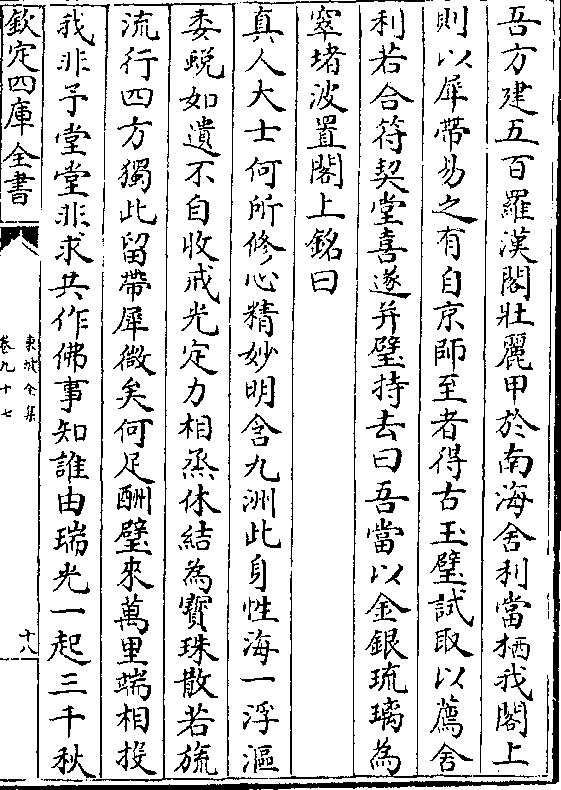 吾方建五百羅漢閣壯麗甲於南海舍利當栖我閣上
則以犀帶易之有自京師至者得古玉璧試取以薦舍
利若合符契堂喜遂并璧持去曰吾當以金銀琉璃為
窣堵波置閣上銘曰
真人大士何所修心精妙明含九洲此身性海一浮漚
委蜕如遺不自收戒光定力相烝休結為寶珠散若旒
流行四方獨此留帶犀微矣何足酬璧來萬里端相投
我非予堂堂非求共作佛事知誰由瑞光一起三千秋
欽定四庫全書
東坡全集
卷九十七
十八